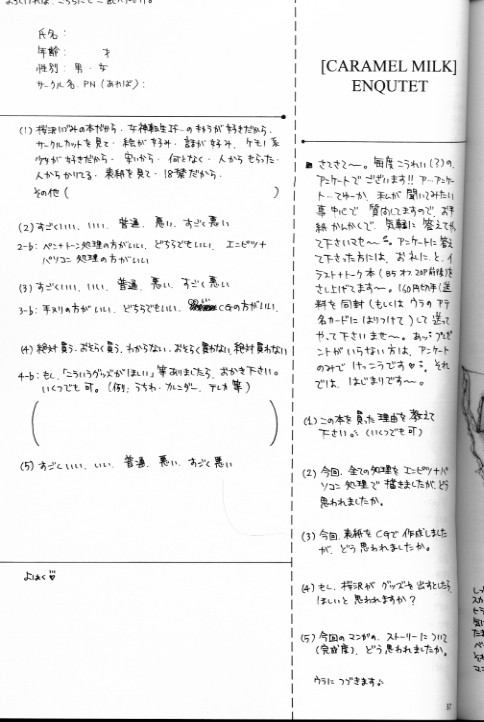 よろしければ、こちらにご記入下さい。
氏名：
年齢：　　才
性別：男・女
サークル名、PN（あれば）：
(1) 桜沢いづみの本だから・女神転生if…のキョウが好きだから・
サークルカットを見て・絵が好み・話が好み・ケモノ系
少年が好きだから・安いから・何となく・人からもらった・
人からかりてる・表紙を見て・18禁だから・
その他（　　）
(2) すごくいい、いい、普通、悪い、すごく悪い
2-b：ペン+トーン処理の方がいい、どちらでもいい、エンピツ+
パソコン処理の方がいい
(3) すごくいい、いい、普通、悪い、すごく悪い
3-b：手ヌリの方がいい、どちらでもいい、CGの方がいい、
(4) 絶対買う、おそらく買う、わからない、おそらく買わない、絶対買わない
4-b：もし、「こういうグッズがほしい」等ありましたら、おかき下さい。
いくつでも可。（例：うちわ・カレンダー、テレカ等）
(5) すごくいい、いい、普通、悪い、すごく悪い
よはく♡
[CARAMEL MILK]
ENQUTET
さてさて〜。毎度こうれい(?)の、
アンケートでございます!! ア…アンケー
ト…てゆーか、私が聞いてみたい
事中心で質問してますので、お手
紙かんかくで、気軽に答えてやっ
て下さいませ〜。アンケートに答え
て下さった方には、お礼に、と、イ
ラスト+トーク本（B5オフ、20P前後）を
さし上げてます〜。160円切手（送
料を同封（もしくはウラのアテ
名カードにはりつけて）して送って
やって下さいませ〜。あっ…プレゼ
ントがいらない方は、アンケート
のみでけっこうです♡。それ
では、はじまりです〜。
(1) この本を買った理由を教えて
下さい。（いくつでも可）
(2) 今回、全ての処理をエンピツ+パ
ソコン処理で描きましたが、どう
思われましたか。
(3) 今回、表紙をCGで作成しました
が、どう思われましたか。
(4) もし、桜沢がグッズを出すとしたら、
ほしいと思われますか？
(5) 今回のマンガの、ストーリーについて
（完成度）、どう思われましたか。
ウラにつづきます♪
37